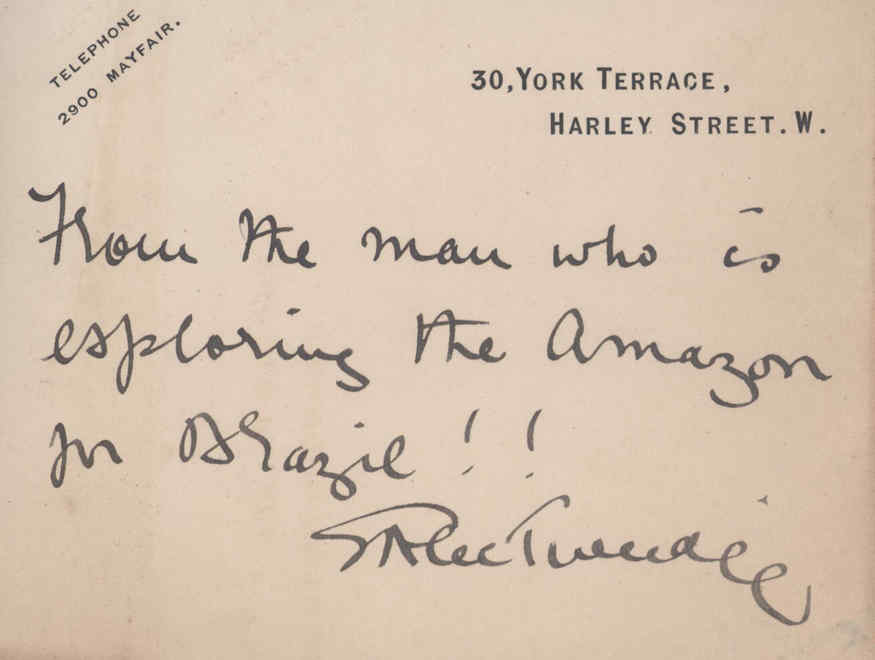 TELEPHONE
2900 MAYFAIR.
30, YORK TERRACE,
HARLEY STREET. W.
From the man who is
exploring the Amazon
for Brazil !!
E Alec Tweedie